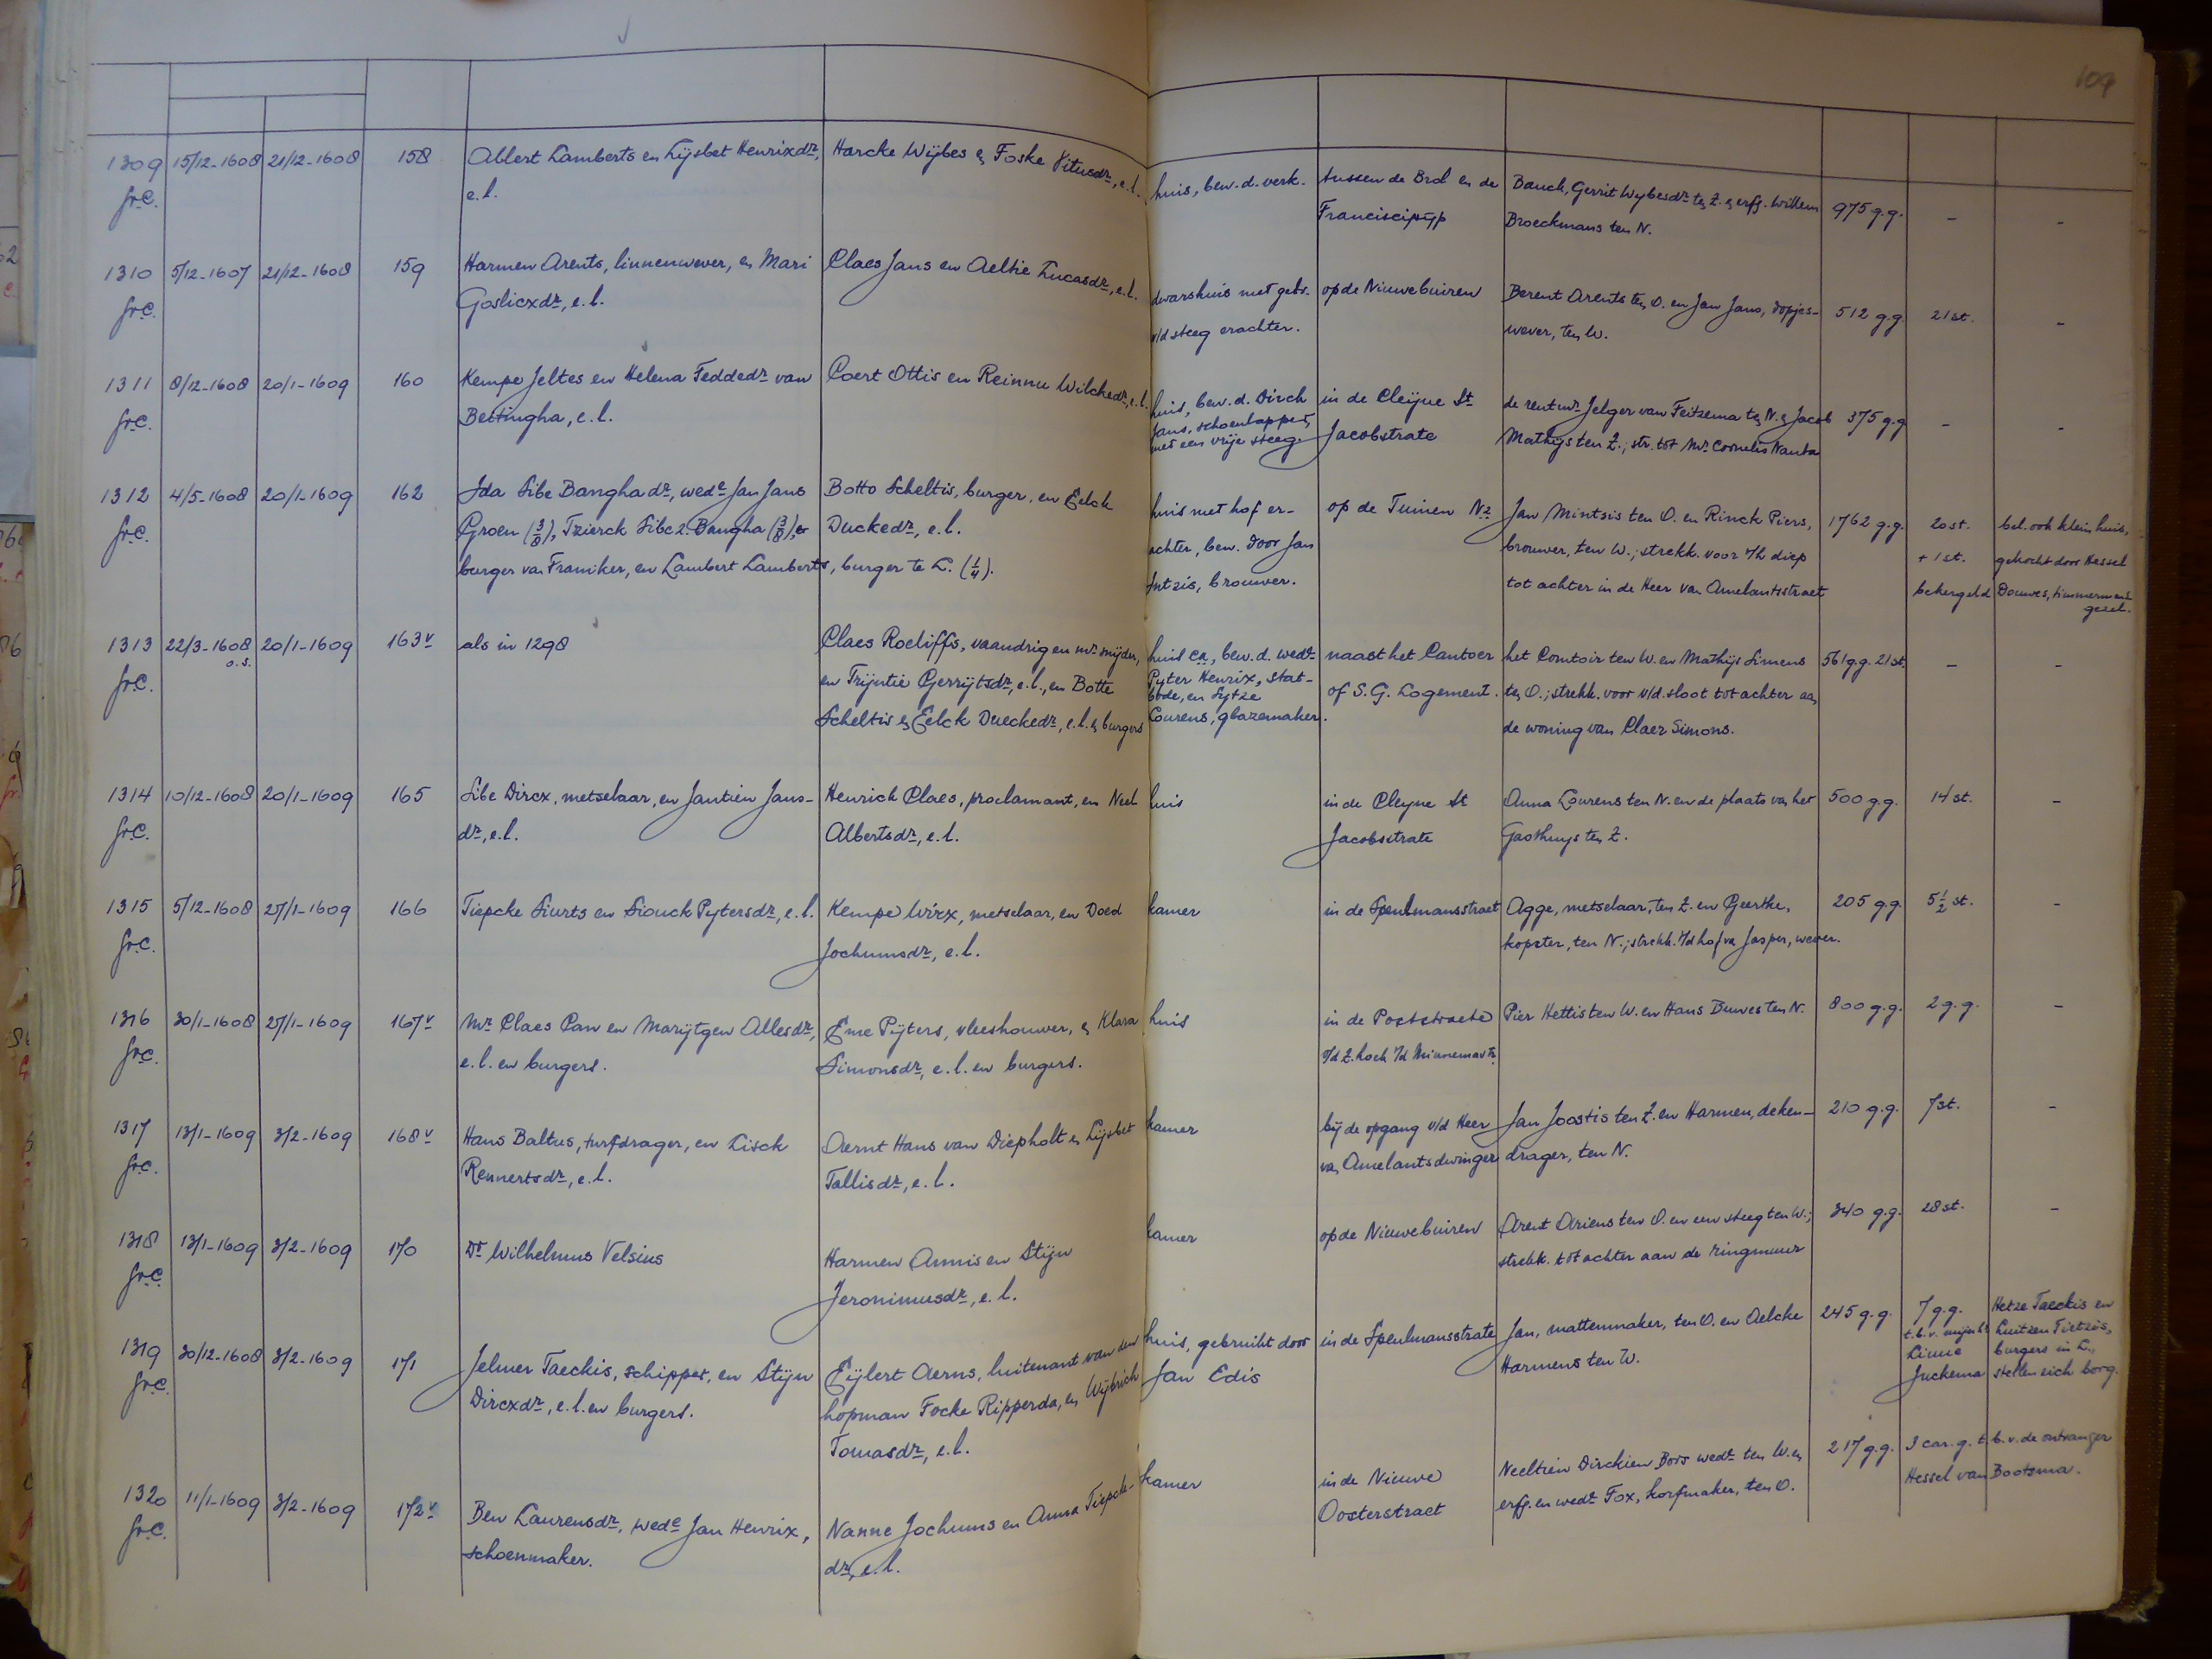 109
1309 15/12-1608 21/12-1608 158 Albert Lamberts en Lijsbet Henrixdr, Harcke Wijbes en Foske Pitusdr, e.l. huis, bew. d. verk. tussen de Brol en de Bauck, Gerrit Wybesdr ten Z. en erfg. Willem 975 g.g. - -
fr.C. e.l. Franciscipijp Broeckmans ten N.
1310 5/12-1607 21/12-1608 159 Harmen Arents, linnenwever, en Mari Claes Jans en Aeltie Lucasdr, e.l. dwarshuis met gebr. op de Nieuwebuiren Berent Arents ten O. en Jan Jans, dopjes- 512 g.g. 21 st. -
fr.C. Goslicxdr, e.l. v/d steeg erachter. wever, ten W.
1311 8/12-1608 20/1-1609 160 Kempe Jeltes en Helena Feddedr van Coert Ottis en Reinnu Wilckedr, e.l. huis, bew. d. Dirck in de Cleijne St de rentmr Jelger van Feitzema ten N. en Jacob 375 g.g. - -
fr.C. Bettingha, e.l. Jans, schoenlapper, Jacobstrate Mathijs ten Z.; str. tot Mr Cornelis Nauta
met een vrije steeg.
1312 4/5-1608 20/1-1609 162 Ida Sibe Banghadr, wede Jan Jans Botto Scheltis, burger, en Eelck huis met hof er- op de Tuinen Nz Jan Mintsis ten O. en Rinck Piers, 1762 g.g. 20 st. bel. ook klein huis,
fr.C. Groen (3/8), Tzierck Sibe z. Bangha (3/8), Duckedr, e.l. achter, bew. door Jan brouwer, ten W.; strekk. voor 't diep + 1 st. gekocht door Hessel
burger van Franiker, en Lambert Lamberts, burger te L. (1/4). Intzis, brouwer. tot achter in de Heer van Amelantsstraet bekergeld Douwes, timmermans
gezel.
1313 22/3-1608 20/1-1609 163v als in 1298 Claes Roeliffs, vaandrig en mr snijder, huis c.a., bew. d. wede naast het Cantoer het Comtoir ten W. en Mathijs Simens 561 g.g. 21 st. - -
o.s.
fr.C. en Trijntie Gerrijtsdr, e.l., en Botte Pyter Henrix, stat- of S.G. Logement. ten O.; strekk. voor v/d sloot tot achter aan
bode, en Sytze
Scheltis en Eelck Dueckedr, e.l. en burgers Lourens, glazemaker. de woning van Claes Simons.
1314 10/12-1608 20/1-1609 165 Sibe Dircx, metselaar, en Jantien Jans- Henrich Claes, proclamant, en Neel huis in de Cleyne St Anna Lourens ten N. en de plaats van het 500 g.g. 14 st. -
fr.C. dr, e.l. Albertsdr, e.l. Jacobsstrate Gasthuys ten Z.
1315 5/12-1608 27/1-1609 166 Tiepcke Siurts en Siouck Pytersdr, e.l. Kempe Wircx, metselaar, en Doed kamer in de Speulmansstraet Agge, metselaar, ten Z. en Geertke, 205 g.g. 5½ st. -
fr.C. Jochumsdr, e.l. kopster, ten N.; strekk. t/d hof va Jasper, wever.
1316 30/1-1608 27/1-1609 167v Mr Claes Pan en Marijtgen Allesdr, Eme Pijters, vleeshouwer, en Klara huis in de Poststraete Pier Hettis ten W. en Hans Buwes ten N. 800 g.g. 2 g.g. -
fr.C. e.l. en burgers. Simonsdr, e.l. en burgers. o/d Z. hoek v/d Minnemastr.
1317 13/1-1609 3/2-1609 168v Hans Baltus, turfdrager, en Lisck Aernt Hans van Diepholt en Lijsbet kamer bij de opgang v/d Heer Jan Joostis ten Z. en Harmen, deken- 210 g.g. 7 st. -
fr.C. Rennertsdr, e.l. Tallisdr, e.l. van Amelantsdwinger drager, ten N.
1318 13/1-1609 3/2-1609 170 Dr Wilhelmus Velsius Harmen Annis en Stijn kamer op de Nieuwebuiren Arent Ariens ten O. en een steeg ten W.; 340 g.g. 28 st. -
fr.C. Jeronimusdr, e.l. strekk. tot achter aan de ringmuur
1319 30/12-1608 3/2-1609 171 Jelmer Taeckis, schipper, en Stijn Eijlert Aerns, luitenant van den huis, gebruikt door in de Speulmansstrate Jan, mattenmaker, ten O. en Aelcke 245 g.g. 7 g.g. Hetze Taeckis en
fr.C. Dircxdr, e.l. en burgers. hopman Focke Ripperda, en Wijbrich Jan Edis Harmens ten W. t.b.v. Luitzen Tietzis,
Tomasdr, e.l. Liuue burgers in L.,
Juckema stellen zich borg.
1320 11/1-1609 3/2-1609 172v Ben Laurensdr, wede Jan Henrix, Nanne Jochums en Anna Tiepcke- kamer in de Nieuwe Neeltien Dirckien Bors wede ten W. en 217 g.g. 3 car. g. t.b.v. de ontvanger
fr.C. schoenmaker. dr, e.l. Oosterstraet erfg. en wede Fox, korfmaker, ten O. Hessel van Bootsma.